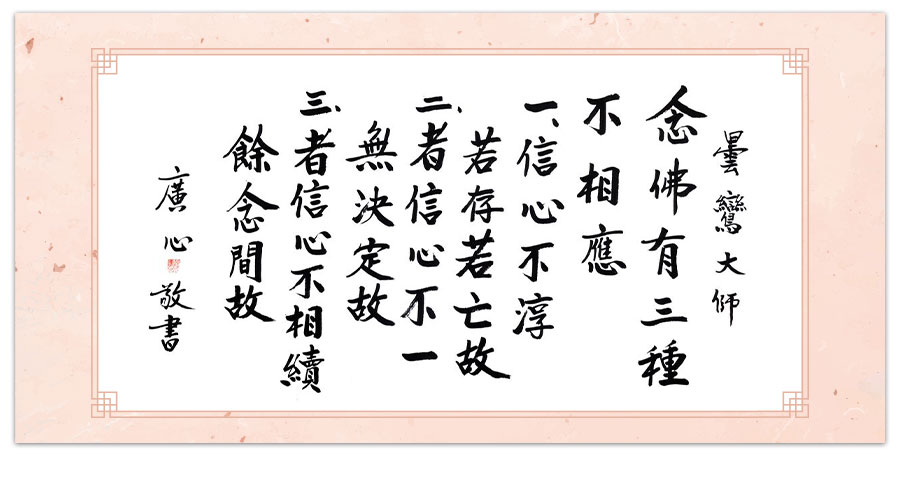 曇鸞大師
念佛有三種
不相應
一、信心不淳
若存若亡故
二、者信心不一
無決定故
三、者信心不相續
餘念間故
廣心
敬書